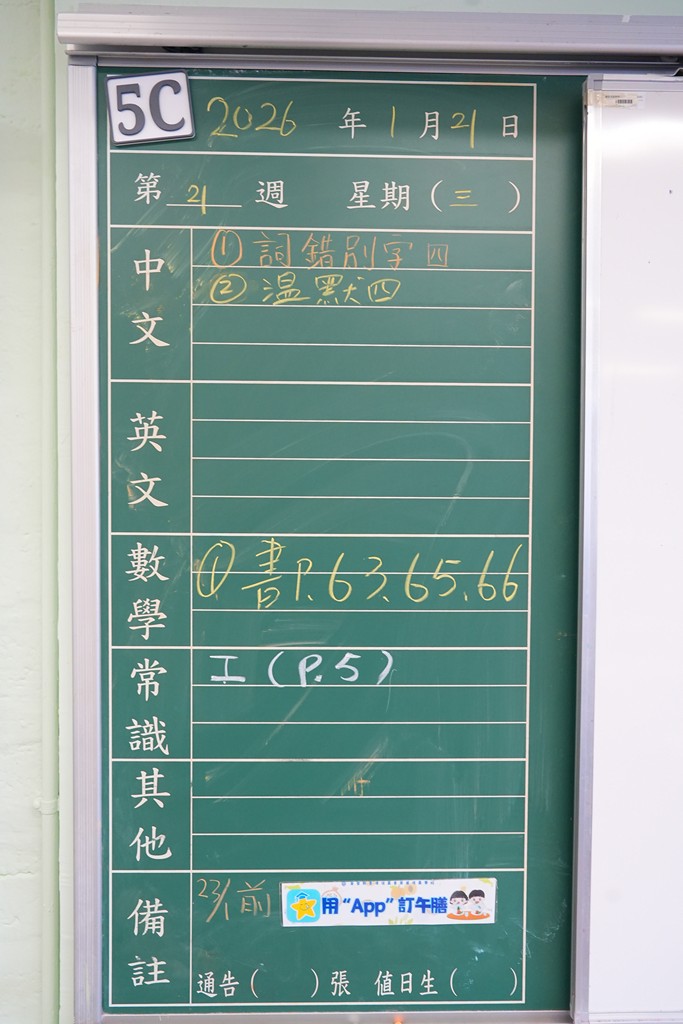 5C 2026 年 1 月 21 日
第 21 週 星期(三)
中文
① 詞錯別字四
② 溫默四
英文
數學
① 書P.63、65、66
常識
工(P.5)
其他
備註
23/1前 用“App”訂午膳
通告( )張 值日生( )